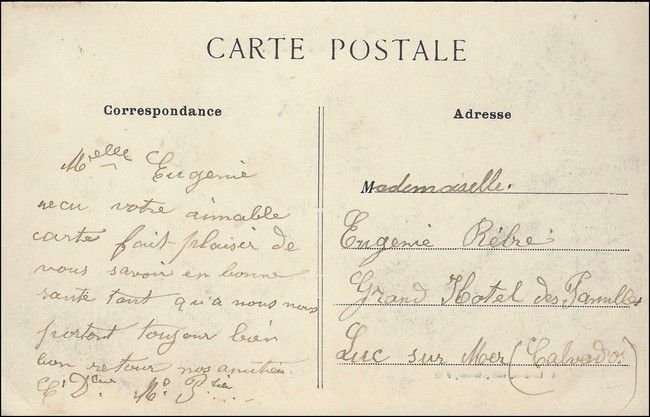 CARTE POSTALE
Correspondance
Melle Eugenie
recu votre aimable
carte fait plaisir de
vous savoir en bonne
santé tant qu'a nous nous
portont toujour bien
bon retour nos amitiés
Adresse
Mademoiselle.
Eugenie
Grand Hotel des Familles
Luc sur Mer (Calvados)